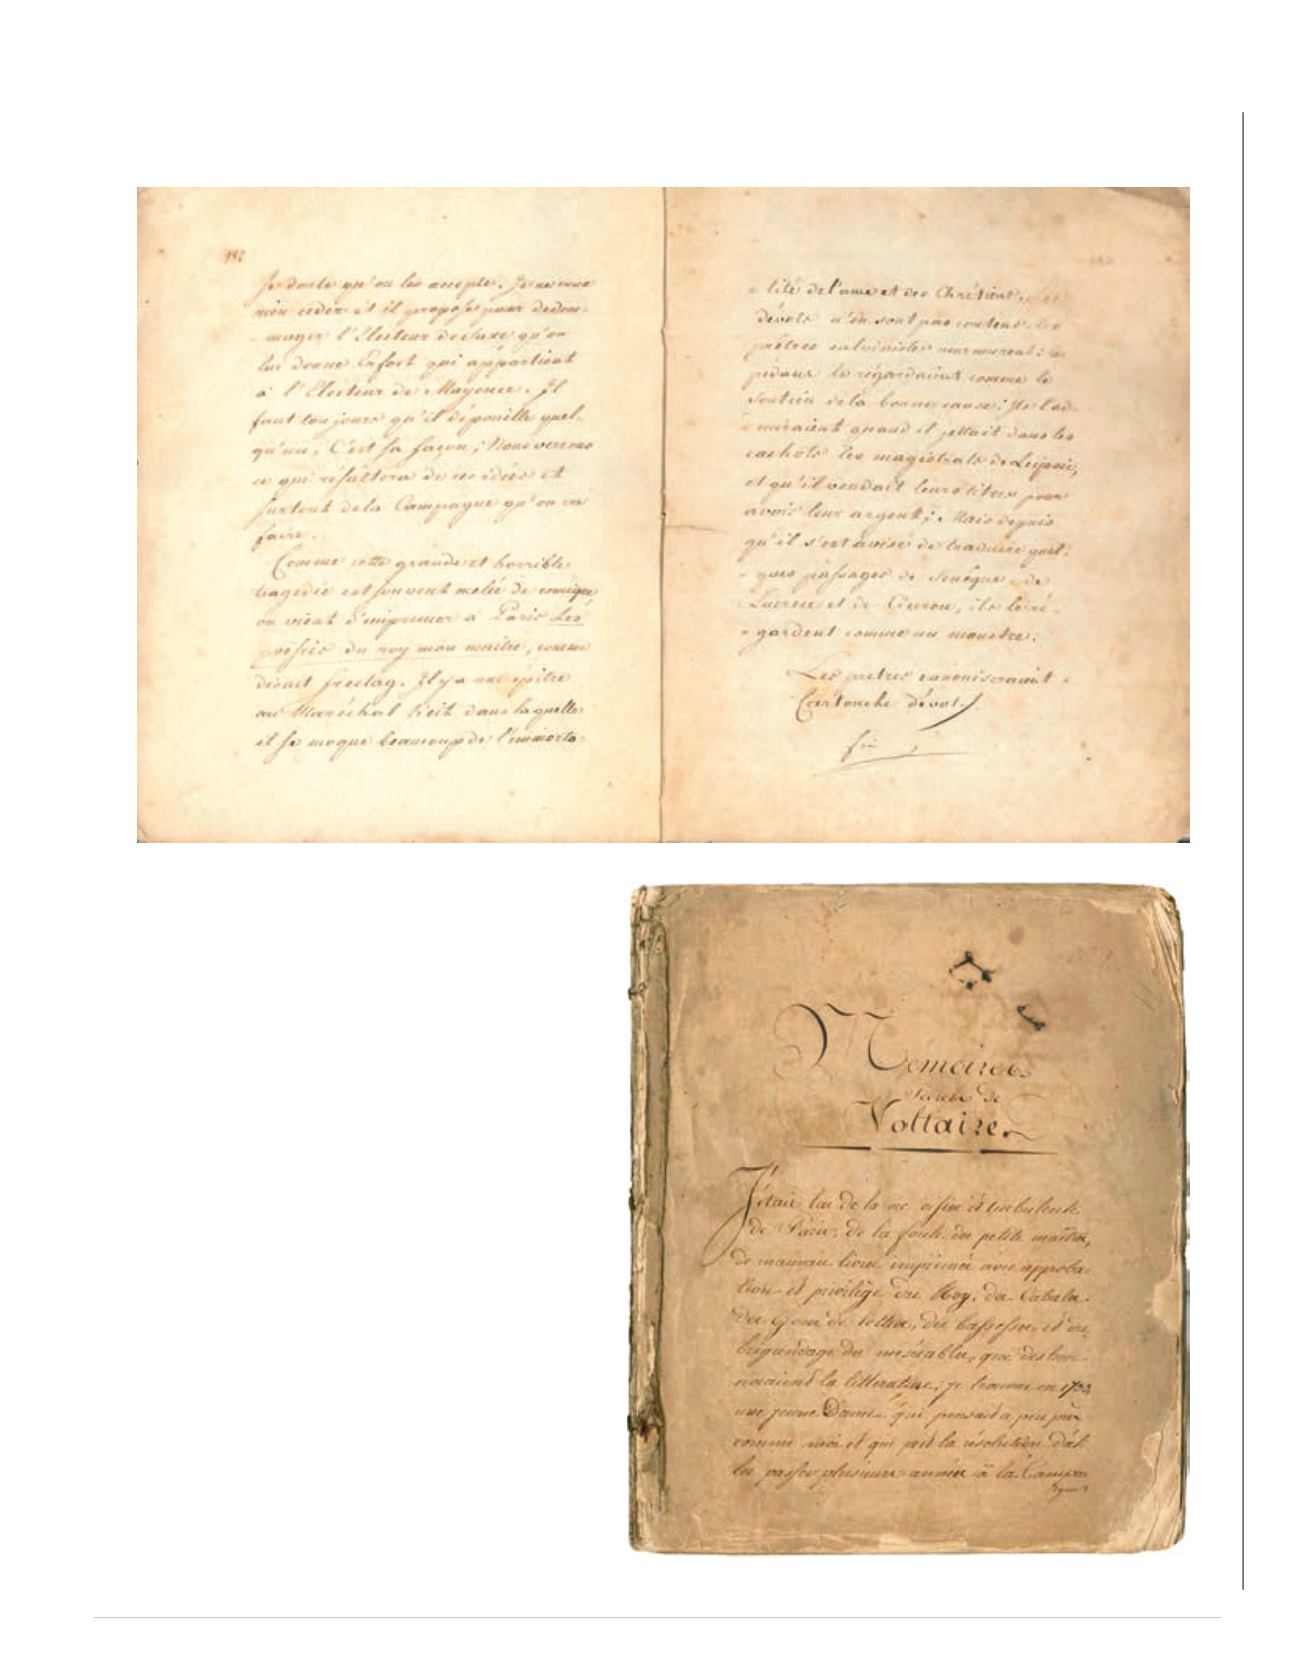 182
Je doute qu'on les accepte. Je ne veux
rien céder et il propose pour dedom-
- mager l'Electeur de Saxe qu'on
lui donne Erfort qui appartient
à l'Electeur de Mayence. Il
faut toujours qu'il dépouille quel-
qu'un, C'est sa façon; Nous verrons
ce qui résultera de ces idées et
surtout de la Campagne qu'on va
faire.
Comme cette grande et horrible
tragedie est souvent melée de comique,
on vient d'imprimer à Paris Les
poësies du roy mon maitre, comme
disait freitag. Il y a une épitre
au Maréchal Keit dans laquelle
il se moque beaucoup de l'immorta-
- lité de l'ame et des Chrétiens. Les
dévots n'en sont pas contens. les
prêtres calvinistes murmurent: ces
pédans le régardaient comme le
Soutien de la bonne cause; ils l'ad-
- miraient quand il jettait dans les
cachots les magistrats de Leipsic,
et qu'il vendait leurs titres pour
avoir leur argent; Mais depuis
qu'il s'est avisé de traduire quel-
- ques passages de Senéque, de
Lucrece et de Ciceron, ils le ré-
- gardent comme un monstre.
Les pretres canoniseraient
Cartouche dévot.
fin
Memoires
secrets de
Voltaire.
J'étais las de la vie oisive et turbulente
de Paris, de la foule des petits maîtres,
de mauvais livres imprimés avec approba-
tion et privilège du Roy, des Cabales
des Gens de lettres, des bassesses et du
brigandage des misérables, qui deshon-
noraient la littérature; je trouvai en 1733
une jeune Dame qui pensait a peu près
comme moi et qui prit la résolution d'al-
ler passer plusieurs années à la Campa-
gne